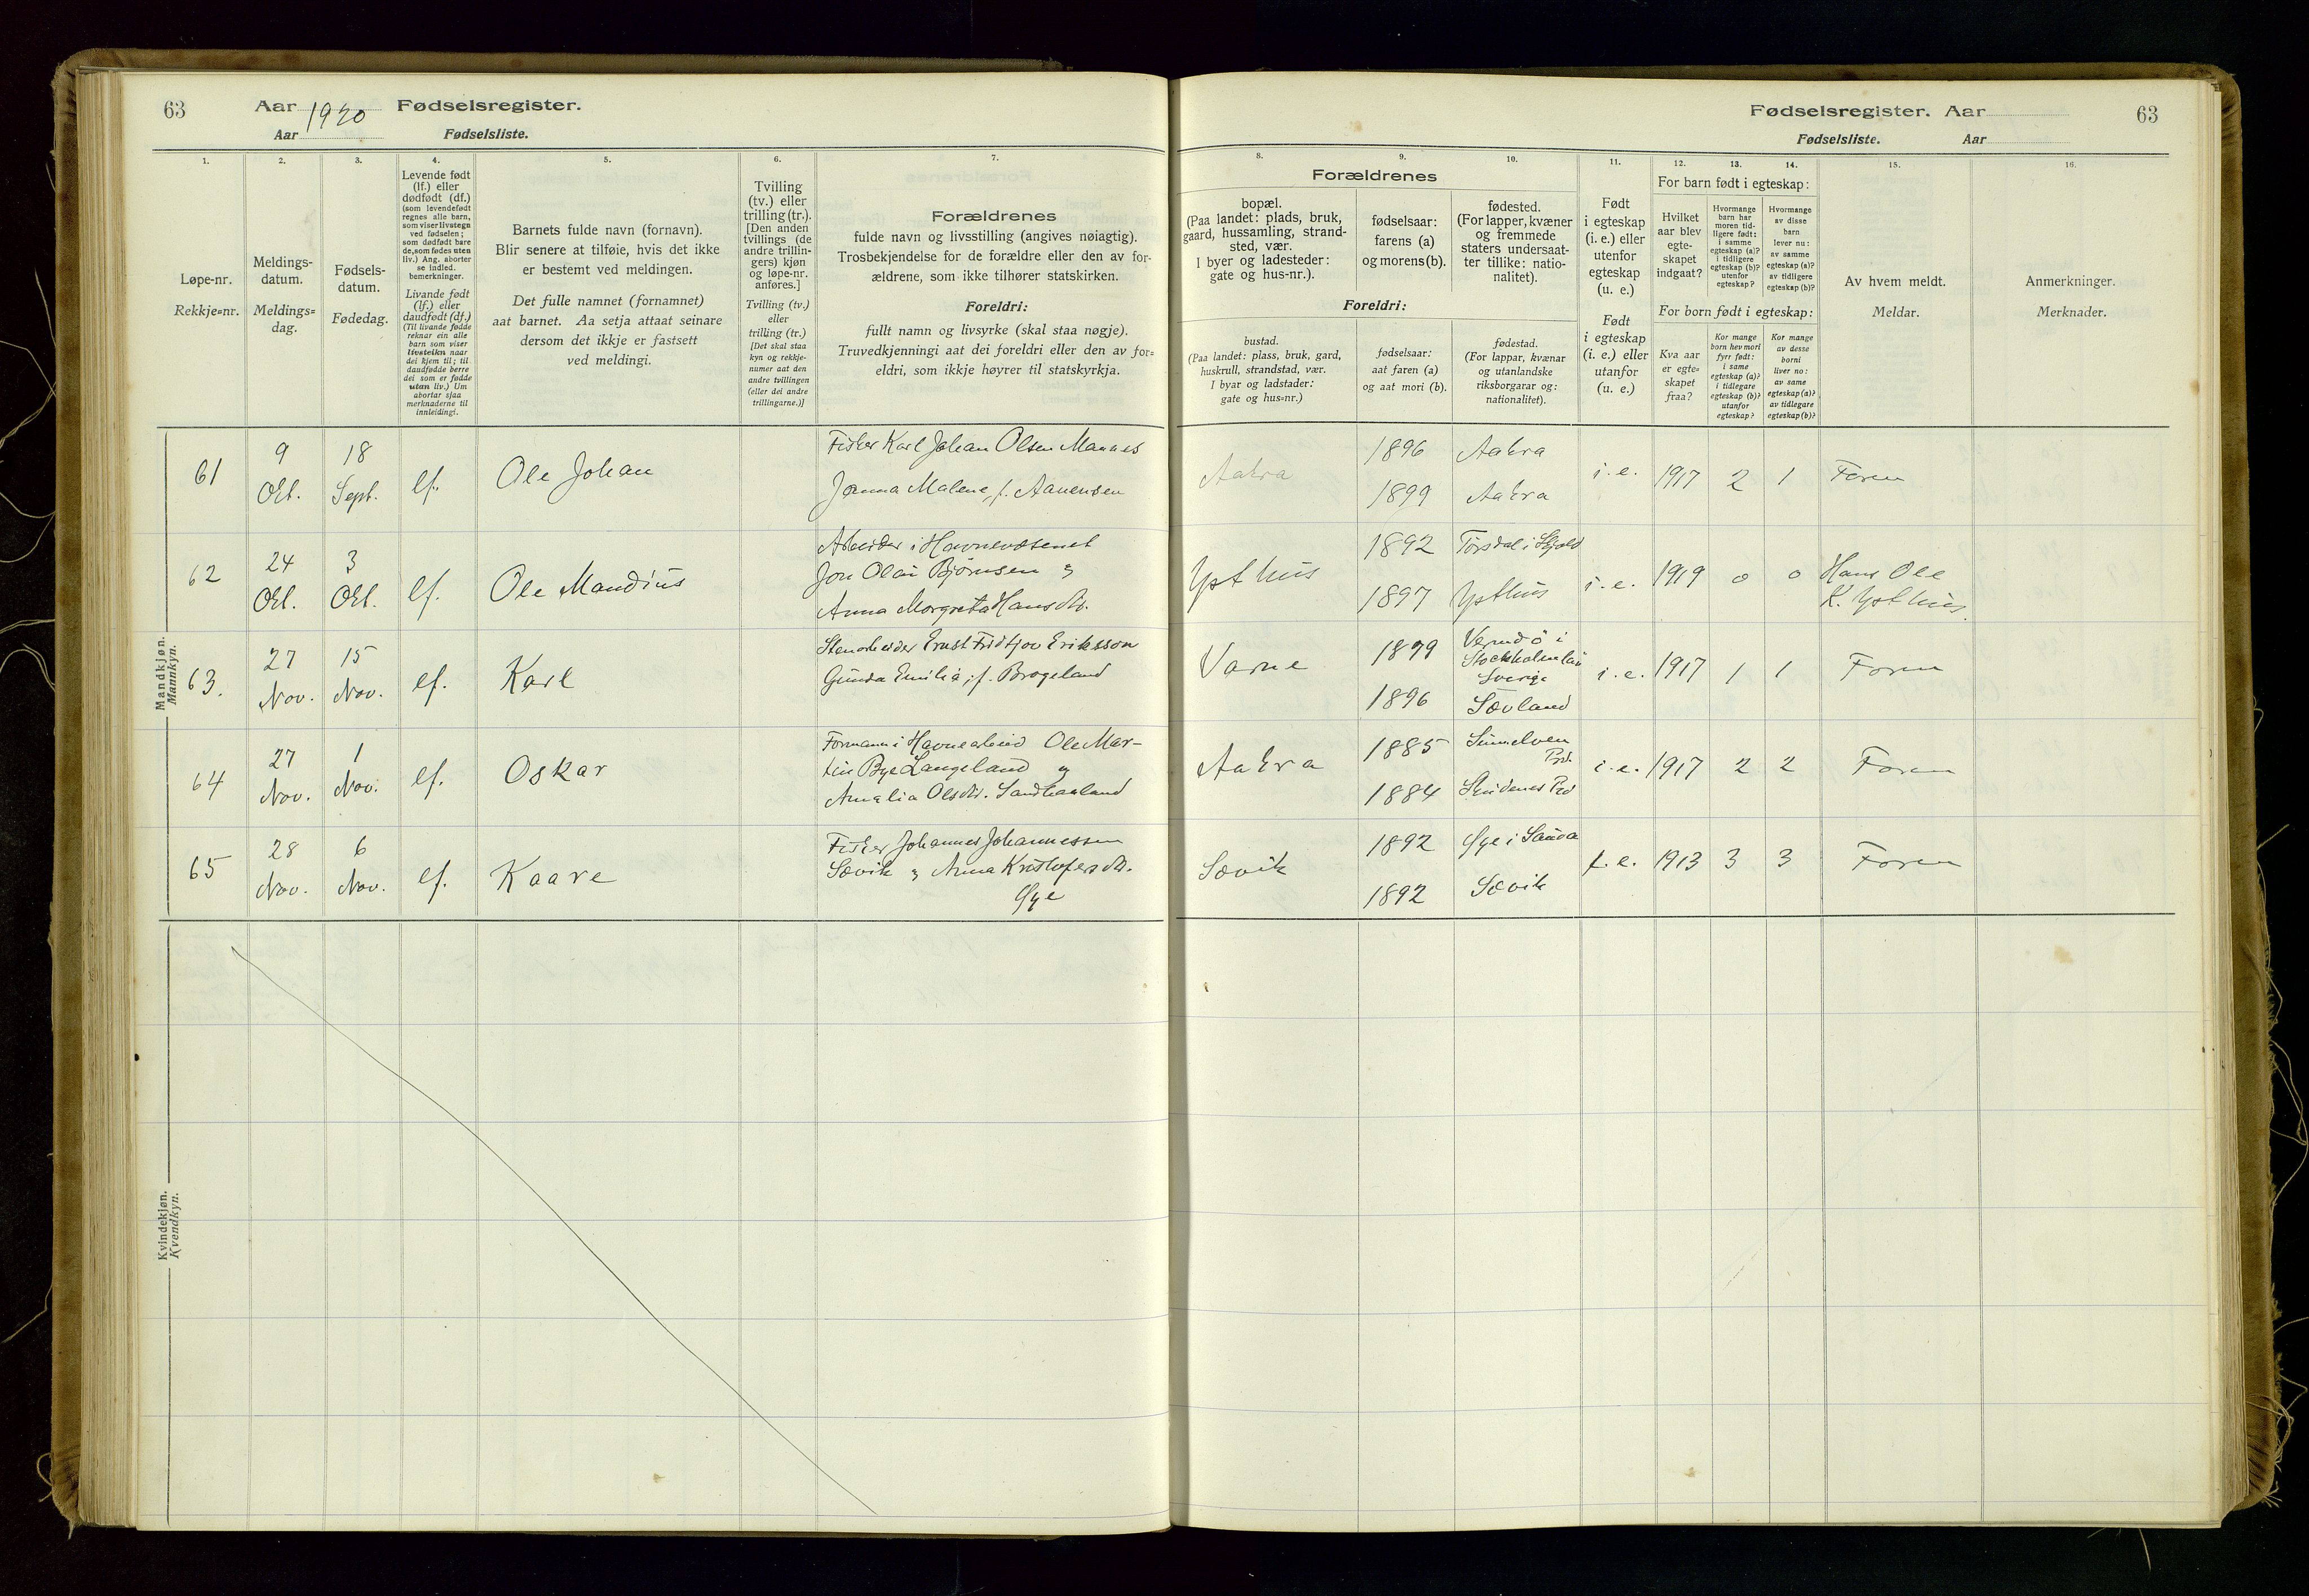 63 Aar 1920 Fødselsregister.
Aar Fødselsliste.
Fødselsregister. Aar 63
Fødselsliste. Aar
1. 2. 3. 4. 5. 6. 7.
Løpe-nr.
Rekkje=nr.
Meldings-
datum.
Meldings=
dag.
Fødsels-
datum.
Fødedag.
Levende født
(lf.) eller
dødfødt (df.)
(som levendefødt
regnes alle barn,
som viser livstegn
ved fødselen;
som dødfødt bare
de, som fødes uten
liv.) Ang. aborter
se indled.
bemerkninger.
Livande født
(lf.) eller
daudfødt (df.)
(Til livande fødde
reknar ein alle
barn som viser
livsteikn naar
dei kjem til; til
daudfødde berre
dei som er fødde
utan liv.) Um
abortar sjaa
merknaderne til
innleidingi.
Barnets fulde navn (fornavn).
Blir senere at tilføie, hvis det ikke
er bestemt ved meldingen.
Det fulle namnet (fornamnet)
aat barnet. Aa setja attaat seinare
dersom det ikkje er fastsett
ved meldingi.
Tvilling
(tv.) eller
trilling (tr.).
[Den anden
tvillings (de
andre trillin-
gers) kjøn
og løpe-nr.
anføres.]
Tvilling (tv.)
eller
trilling (tr.)
[Det skal staa
kyn og rekkje-
numer aat den
andre tvillingen
(eller dei andre
trillingarne.)]
Forældrenes
fulde navn og livsstilling (angives nøiagtig).
Trosbekjendelse for de forældre eller den av for-
ældrene, som ikke tilhører statskirken.
Foreldri:
fullt namn og livsyrke (skal staa nøgje).
Truvedkjenningi aat dei foreldri eller den av for=
eldri, som ikkje høyrer til statskyrkja.
8. 9. 10. 11. 12. 13. 14. 15. 16.
Forældrenes
bopæl.
(Paa landet: plads, bruk,
gaard, hussamling, strand-
sted, vær.
I byer og ladesteder:
gate og hus-nr.).
fødselsaar:
farens (a)
og morens (b).
fødested.
(For lapper, kvæner
og fremmede
staters undersaat-
ter tillike: natio-
nalitet).
Foreldri:
bustad.
(Paa landet: plass, bruk, gard,
huskrull, strandstad, vær.
I byar og ladstader:
gate og hus=nr.)
fødselsaar:
aat faren (a)
og aat mori (b).
fødestad.
(For lappar, kvænar
og utanlandske
riksborgarar og:
nationalitet).
Født
i egteskap
(i. e.) eller
utenfor
egteskap
(u. e.)
Født
i egteskap
(i. e.) eller
utanfor
(u. e.)
For barn født i egteskap:
Hvilket
aar blev
egte-
skapet
indgaat?
Hvormange
barn har
moren tid-
ligere født:
i samme
egteskap (a)?
i tidligere
egteskap (b)?
utenfor
egteskap?
Hvormange
av disse
barn
lever nu:
av samme
egteskap (a)?
av tidligere
egteskap (b)?
For born født i egteskap:
Kva aar
er egte=
skapet
fraa?
Kor mange
born hev mori
fyrr født:
i same
egteskap (a)?
i tidlegare
egteskap (b)?
utanfor
egteskap?
Kor mange
av desse
borni
liver no:
av same
egteskap (a)?
av tidlegare
egteskap (b)?
Av hvem meldt.
Meldar.
Anmerkninger.
Merknader.
Mandkjøn.
Mannkyn.
61
9
Okt.
18
Sept.
lf.
Ole Johan
Fisker Karl Johan Olsen Mannes
Janna Malene, f. Aanensen
Aakra
1896 Aakra
1899 Aakra
i. e. 1917 2 1 Faren
62
24
Okt.
3
Okt.
lf.
Ole Mandius
Arbeider i Havnevæsenet
Jon Olai Bjørnsen og
Anna Morgreta Hansdtr.
Ysthus
1892 Tørsdal i Skjold
1897 Ysthus
i. e. 1919 0 0 Hans Ole
K. Ysthus.
63.
27
Nov.
15
Nov.
lf.
Karl
Stenarbeider Ernst Fridtjov Eriksson
Gunda Emilia, f. Brogeland
Varne
1899 Vermdö i
Stockholm län
Sverige
1896 Sævland
i. e. 1917 1 1 Faren
64
27
Nov.
1
Nov.
lf.
Oskar
Formann i Havnearbeid Ole Mar-
tin Bye Langeland og
Amalia Olsdtr. Sandhaaland
Aakra
1885 Sunnelven
Prd.
1884 Skudenes Prd
i. e. 1917 2 2 Faren
65
28
Nov.
6
Nov.
lf.
Kaare
Fisker Johannes Johannessen
Sævik og Anna Kristofersdtr.
Øye
Sævik
1892 Øye i Sauda
1892 Sævik
i. e. 1913 3 3 Faren
Kvindekjøn.
Kvendkyn.